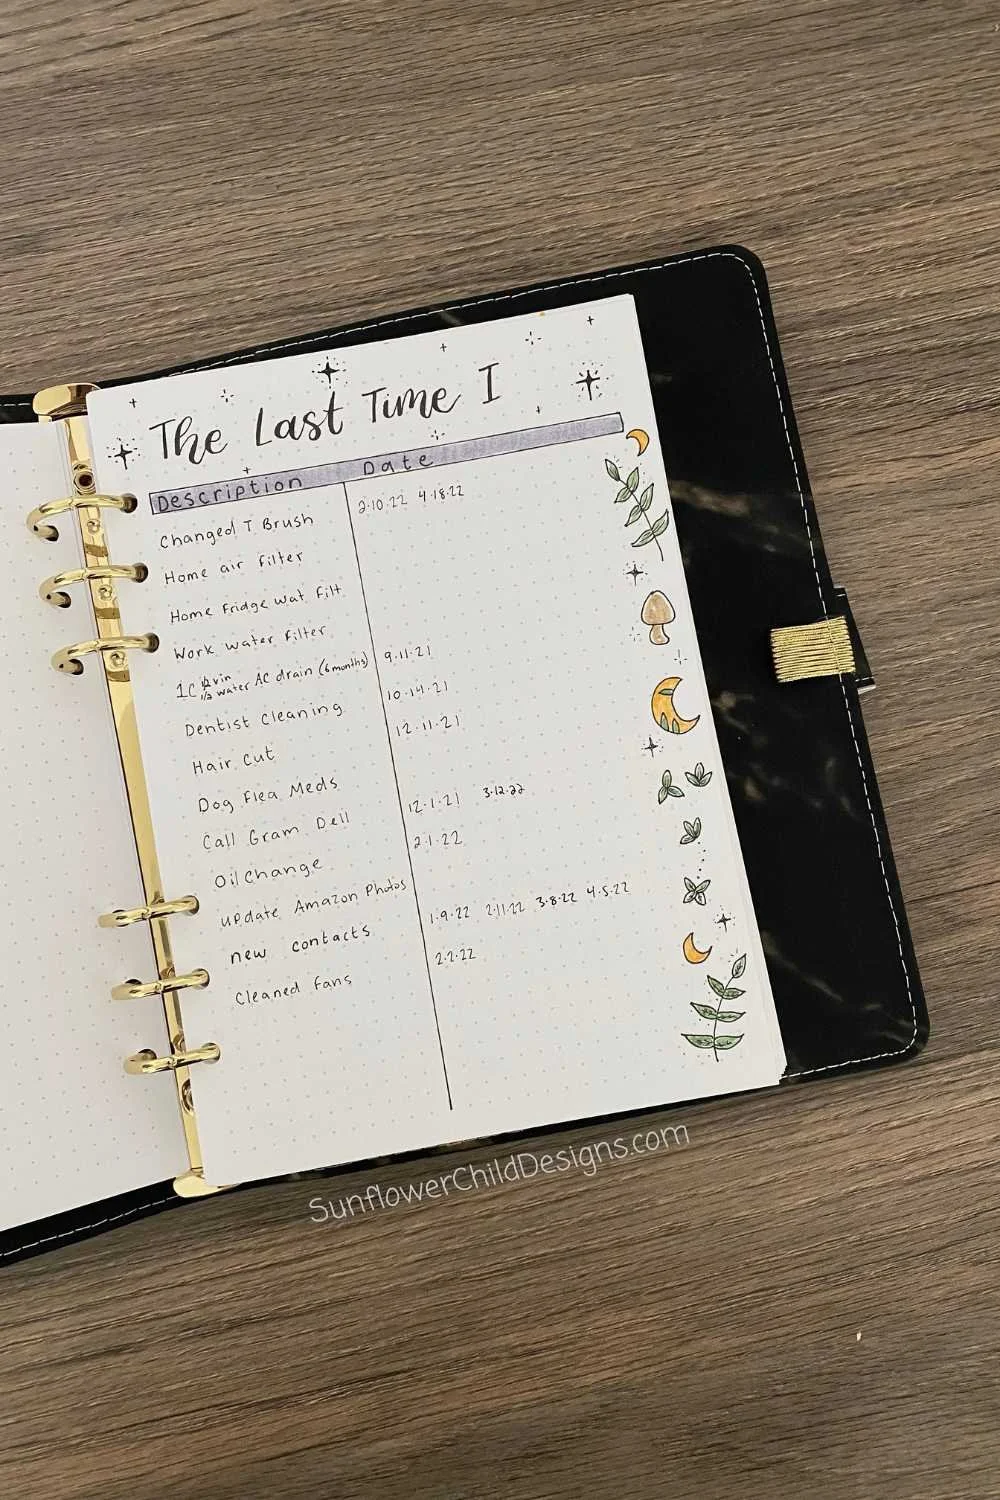 The Last Time I
Description Date
Changed T Brush 2.10.22 4.18.22
Home air filter
Home Fridge wat filt
Work water filter
1C vin 1/2 water AC drain (6 months) 9.11.21
Dentist Cleaning 10.14.21
Hair Cut 12.11.21
Dog Flea Meds
Call Gram Dell 12.1.21 3.12.22
Oil Change 2.1.22
update Amazon Photos
new contacts 1.9.22 2.11.22 3.8.22 4.5.22
Cleaned Fans 2.2.22
SunflowerChildDesigns.com